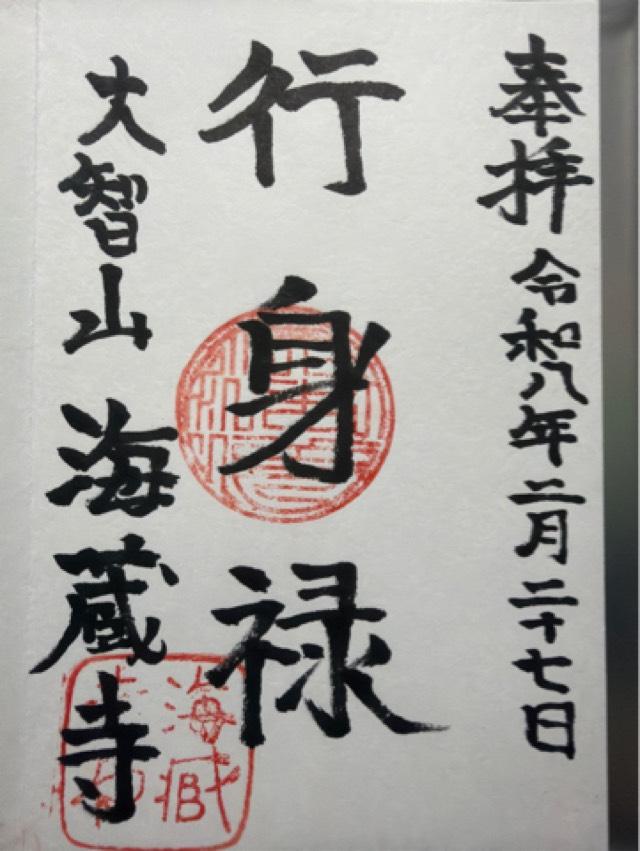 奉拝 令和八年二月二十七日
行身禄
大智山 海蔵寺